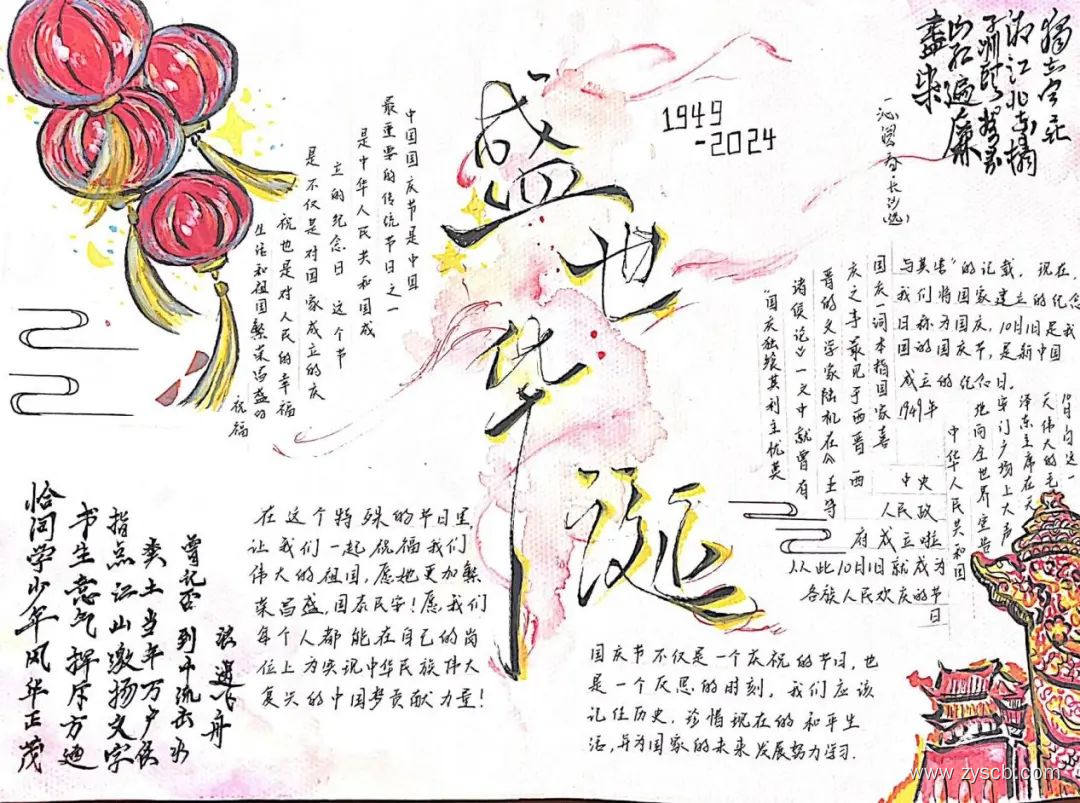 盛世华诞
1949
-2024
独立寒秋
湘江北去 橘
子洲头 看万
山红遍 层林
尽染
沁园春·长沙(选)
中国国庆节是中国
最重要的传统节日之一
是中华人民共和国成
立的纪念日 这个节
是不仅是对国家成立的庆
祝也是对人民的幸福
生活和祖国繁荣昌盛的
祝福
国庆一词本指国家喜
庆之事最见于西晋 西
晋的文学家陆机在《五等
诸侯论》一文中就曾有
“国庆独飨其利主忧莫
与其害”的记载, 现在,
我们将国家建立的纪念
日称为国庆, 10月1日是我
国的国庆节, 是新中国
成立的纪念日。
1949年
10月1日这一
天伟大的毛
泽东主席在天
安门广场上大声
地向全世界宣告
中华人民共和国
中央
人民政
府成立啦
从此10月1日就成为
各族人民欢庆的节
日
在这个特殊的节日里,
让我们一起祝福我们
伟大的祖国, 愿她更加繁
荣昌盛, 国泰民安! 愿我们
每个人都能在自己的岗
位上为实现中华民族伟大
复兴的中国梦贡献力量!
国庆节不仅是一个庆祝的节日, 也
是一个反思的时刻, 我们应该
记住历史, 珍惜现在的和平生
活, 并为国家的未来发展努力学习.
恰同学少年风华正茂
书生意气挥斥方遒
指点江山激扬文字
粪土当年万户侯
曾记否 到中流击水
浪遏飞舟
www.zyscb.com